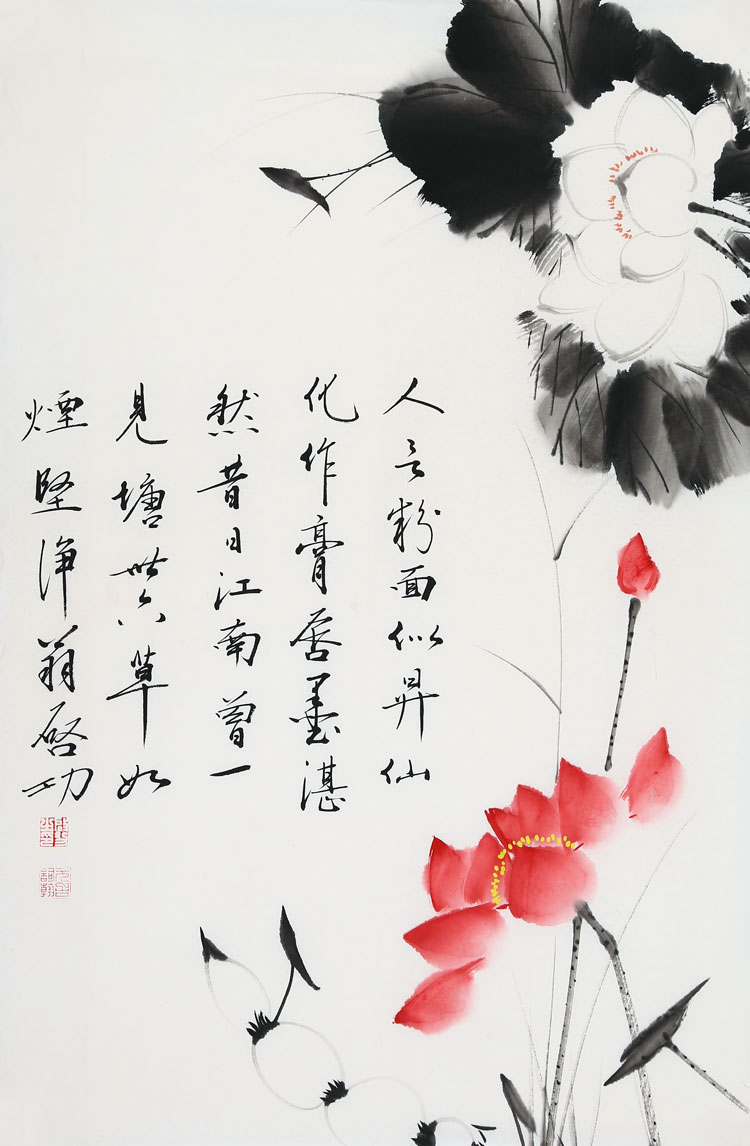 人言粉面似昇仙
化作膏唇墨湛
然昔日江南曾一
見塘卅六草如
煙堅淨翁啓功